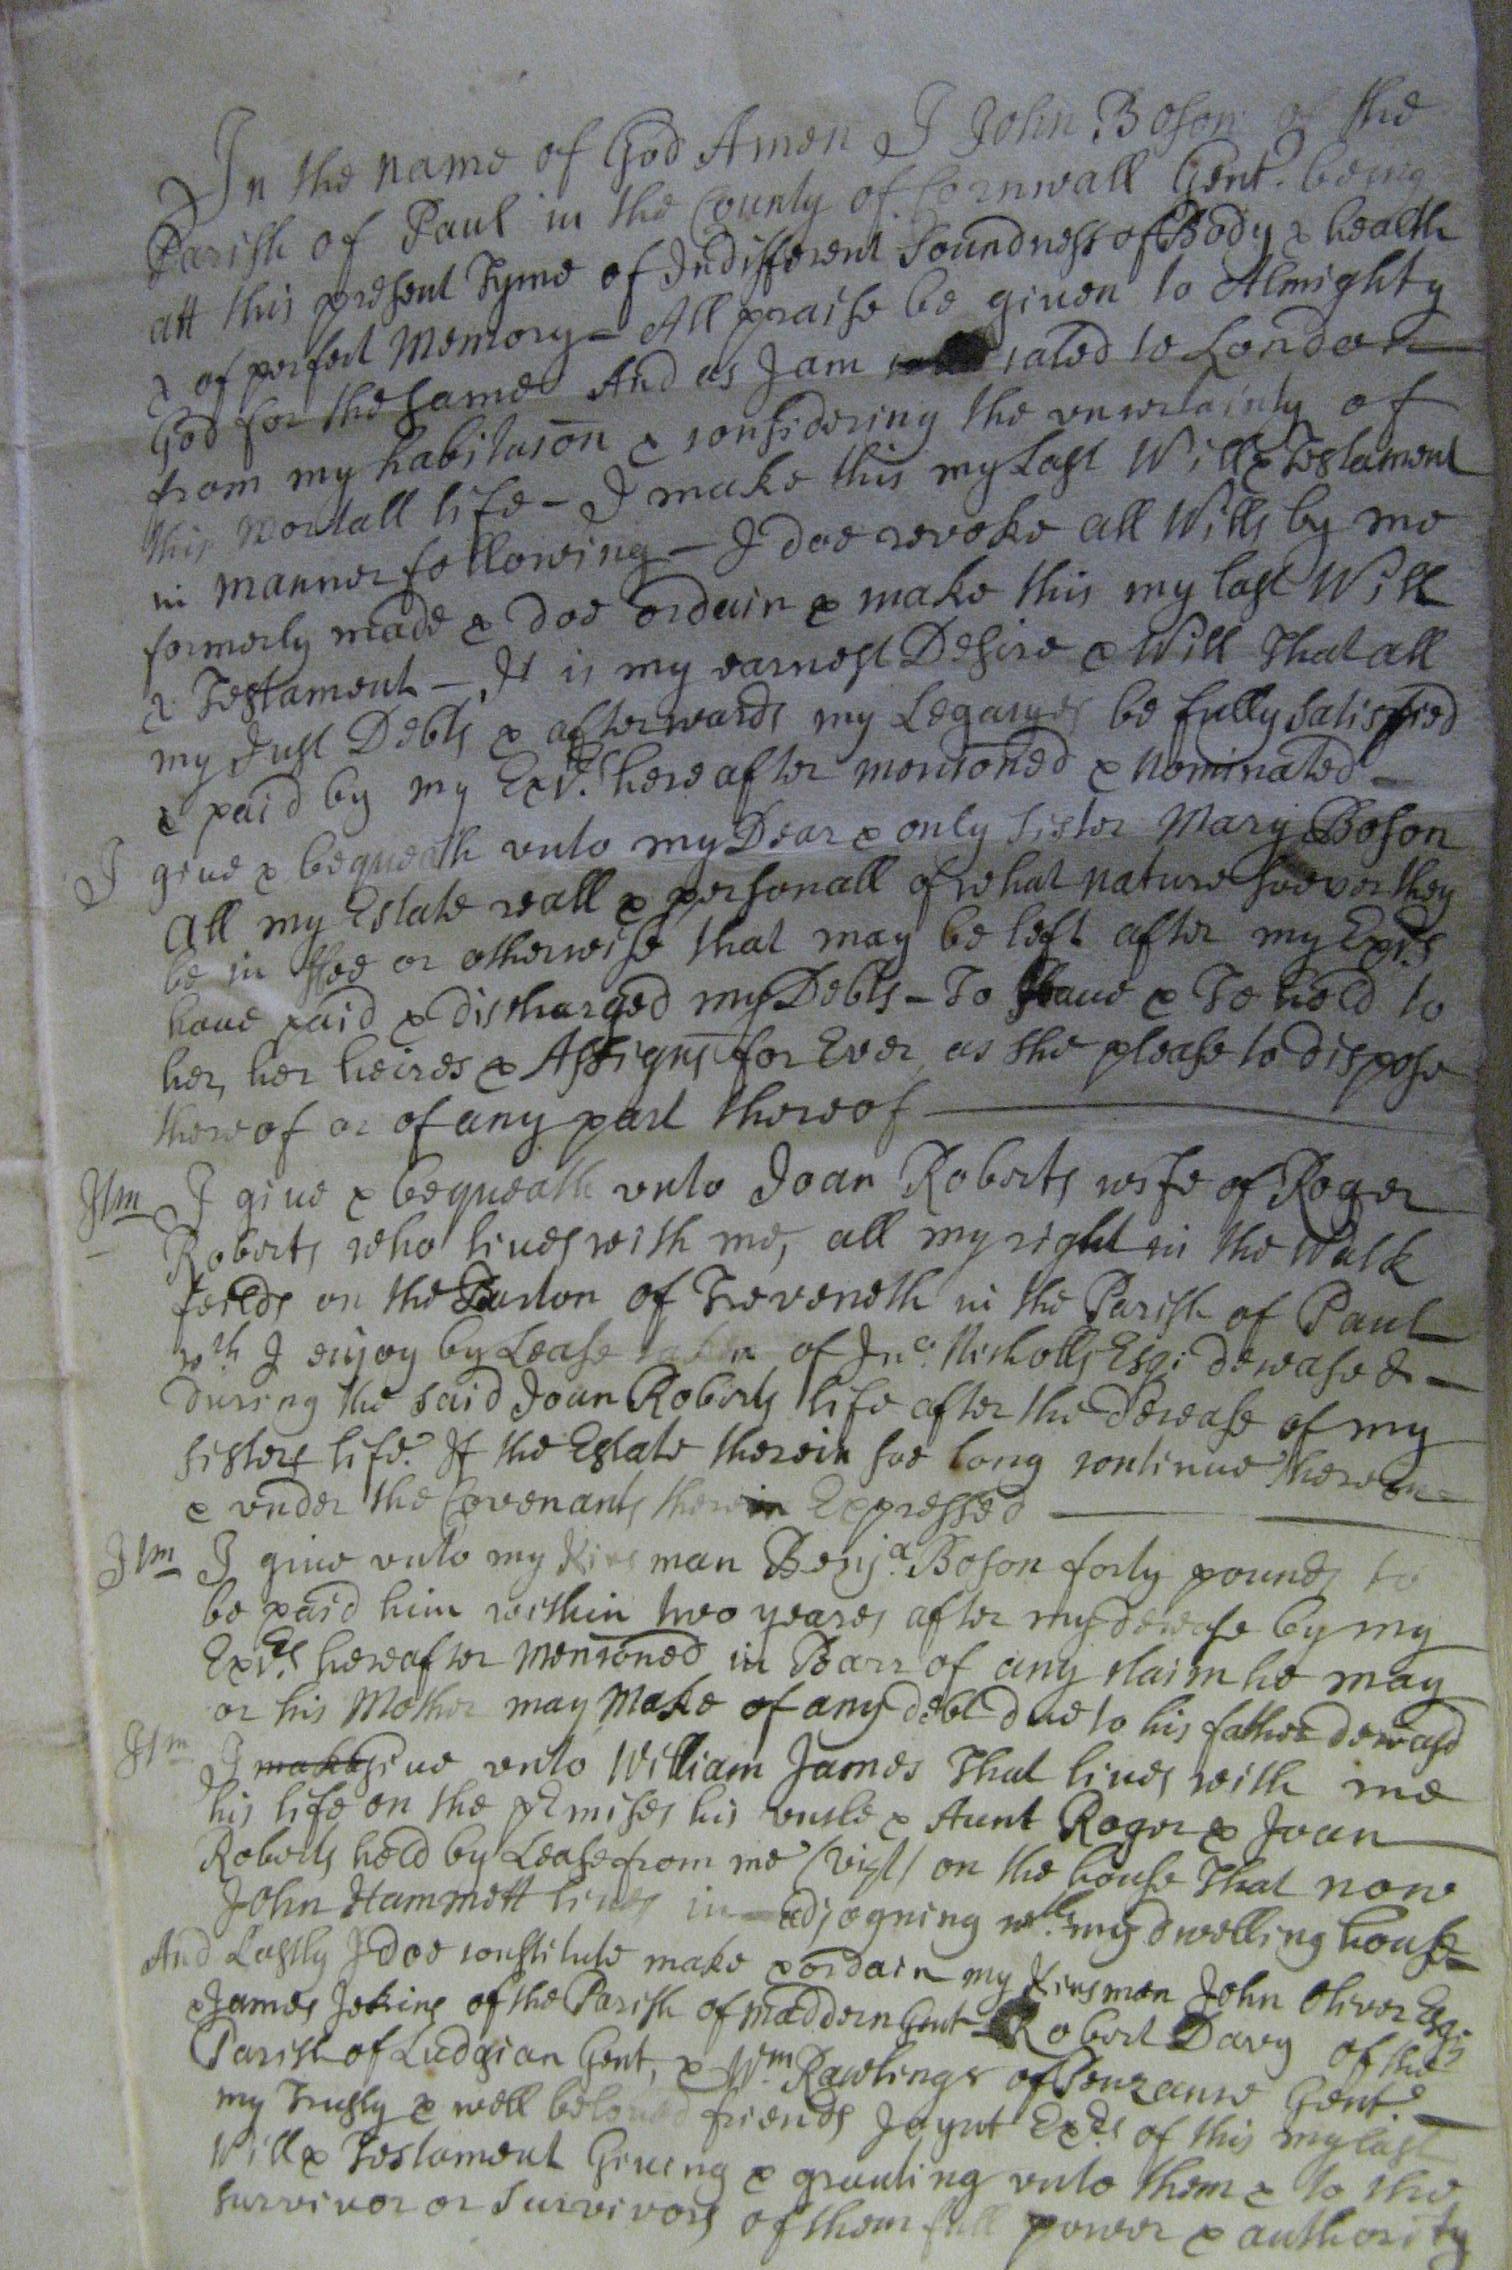 In the name of God Amen I John Boson of the
Parish of Paul in the County of Cornwall Gent. being
att this present Tyme of Indifferent Soundness of Body & health
& of perfect Memory – All praise be given to Almighty
God for the same And as I am called to London
from my habitacōn & considering the uncertainty of
this mortall life – I make this my Last Will & Testament
in manner following – I doe revoke all Wills by me
formerly made & doe ordain & make this my last Will
& Testament – It is my earnest Desire & Will That all
my Just Debts & afterwards my Legacyes be fully satisfied
& paid by my Exrs. hereafter mencōned & Nominated –
I give & bequeath unto my Dear & only Sister Mary Boson
All my Estate reall & personall of what nature soever they
be in ffee or otherwise that may be left after my Exrs
have paid & discharged my Debts – To Have & To hold to
her, her heires & Assigns for Ever as she please to dispose
thereof or of any part thereof
Itm I give & bequeath unto Joan Roberts wife of Roger
Roberts who lives with me, all my right in the Walk
feilds on the Barton of Treveneth in the Parish of Paul
wch I enjoy by Lease taken of Jno. Nicholls Esqr deceased –
during the said Joan Roberts life after the decease of my
sisters life. If the Estate therein soe long continue thereon
& under the Covenants therein Expressed
Itm I give unto my Kinsman Benja. Boson forty pounds to
be paid him within two yeares after my decease by my
Exrs. hereafter mencōned in Barr of any claim he may
or his Mother may Make of any debt due to his father deceasd
Itm I make give unto William James That lives with me
his life on the premises his uncle & Aunt Roger & Joan
Roberts held by Lease from me (vizt) on the house That now
John Hammett lives in adjoyning wth. my dwelling house
And Lastly I doe constitute make & ordain my Kinsmen John Oliver Esqr
& James Jekins of the Parish of Maddern Gent – Robert Davy of the
Parish of Ludgian Gent, & Wm Rawlings of Penzance Gent. –
my Trusty & well beloved friends Joynt Exrs of this my last
Will & Testament Giveing & granting unto them & to the
survivor or survivors of them full power & authority